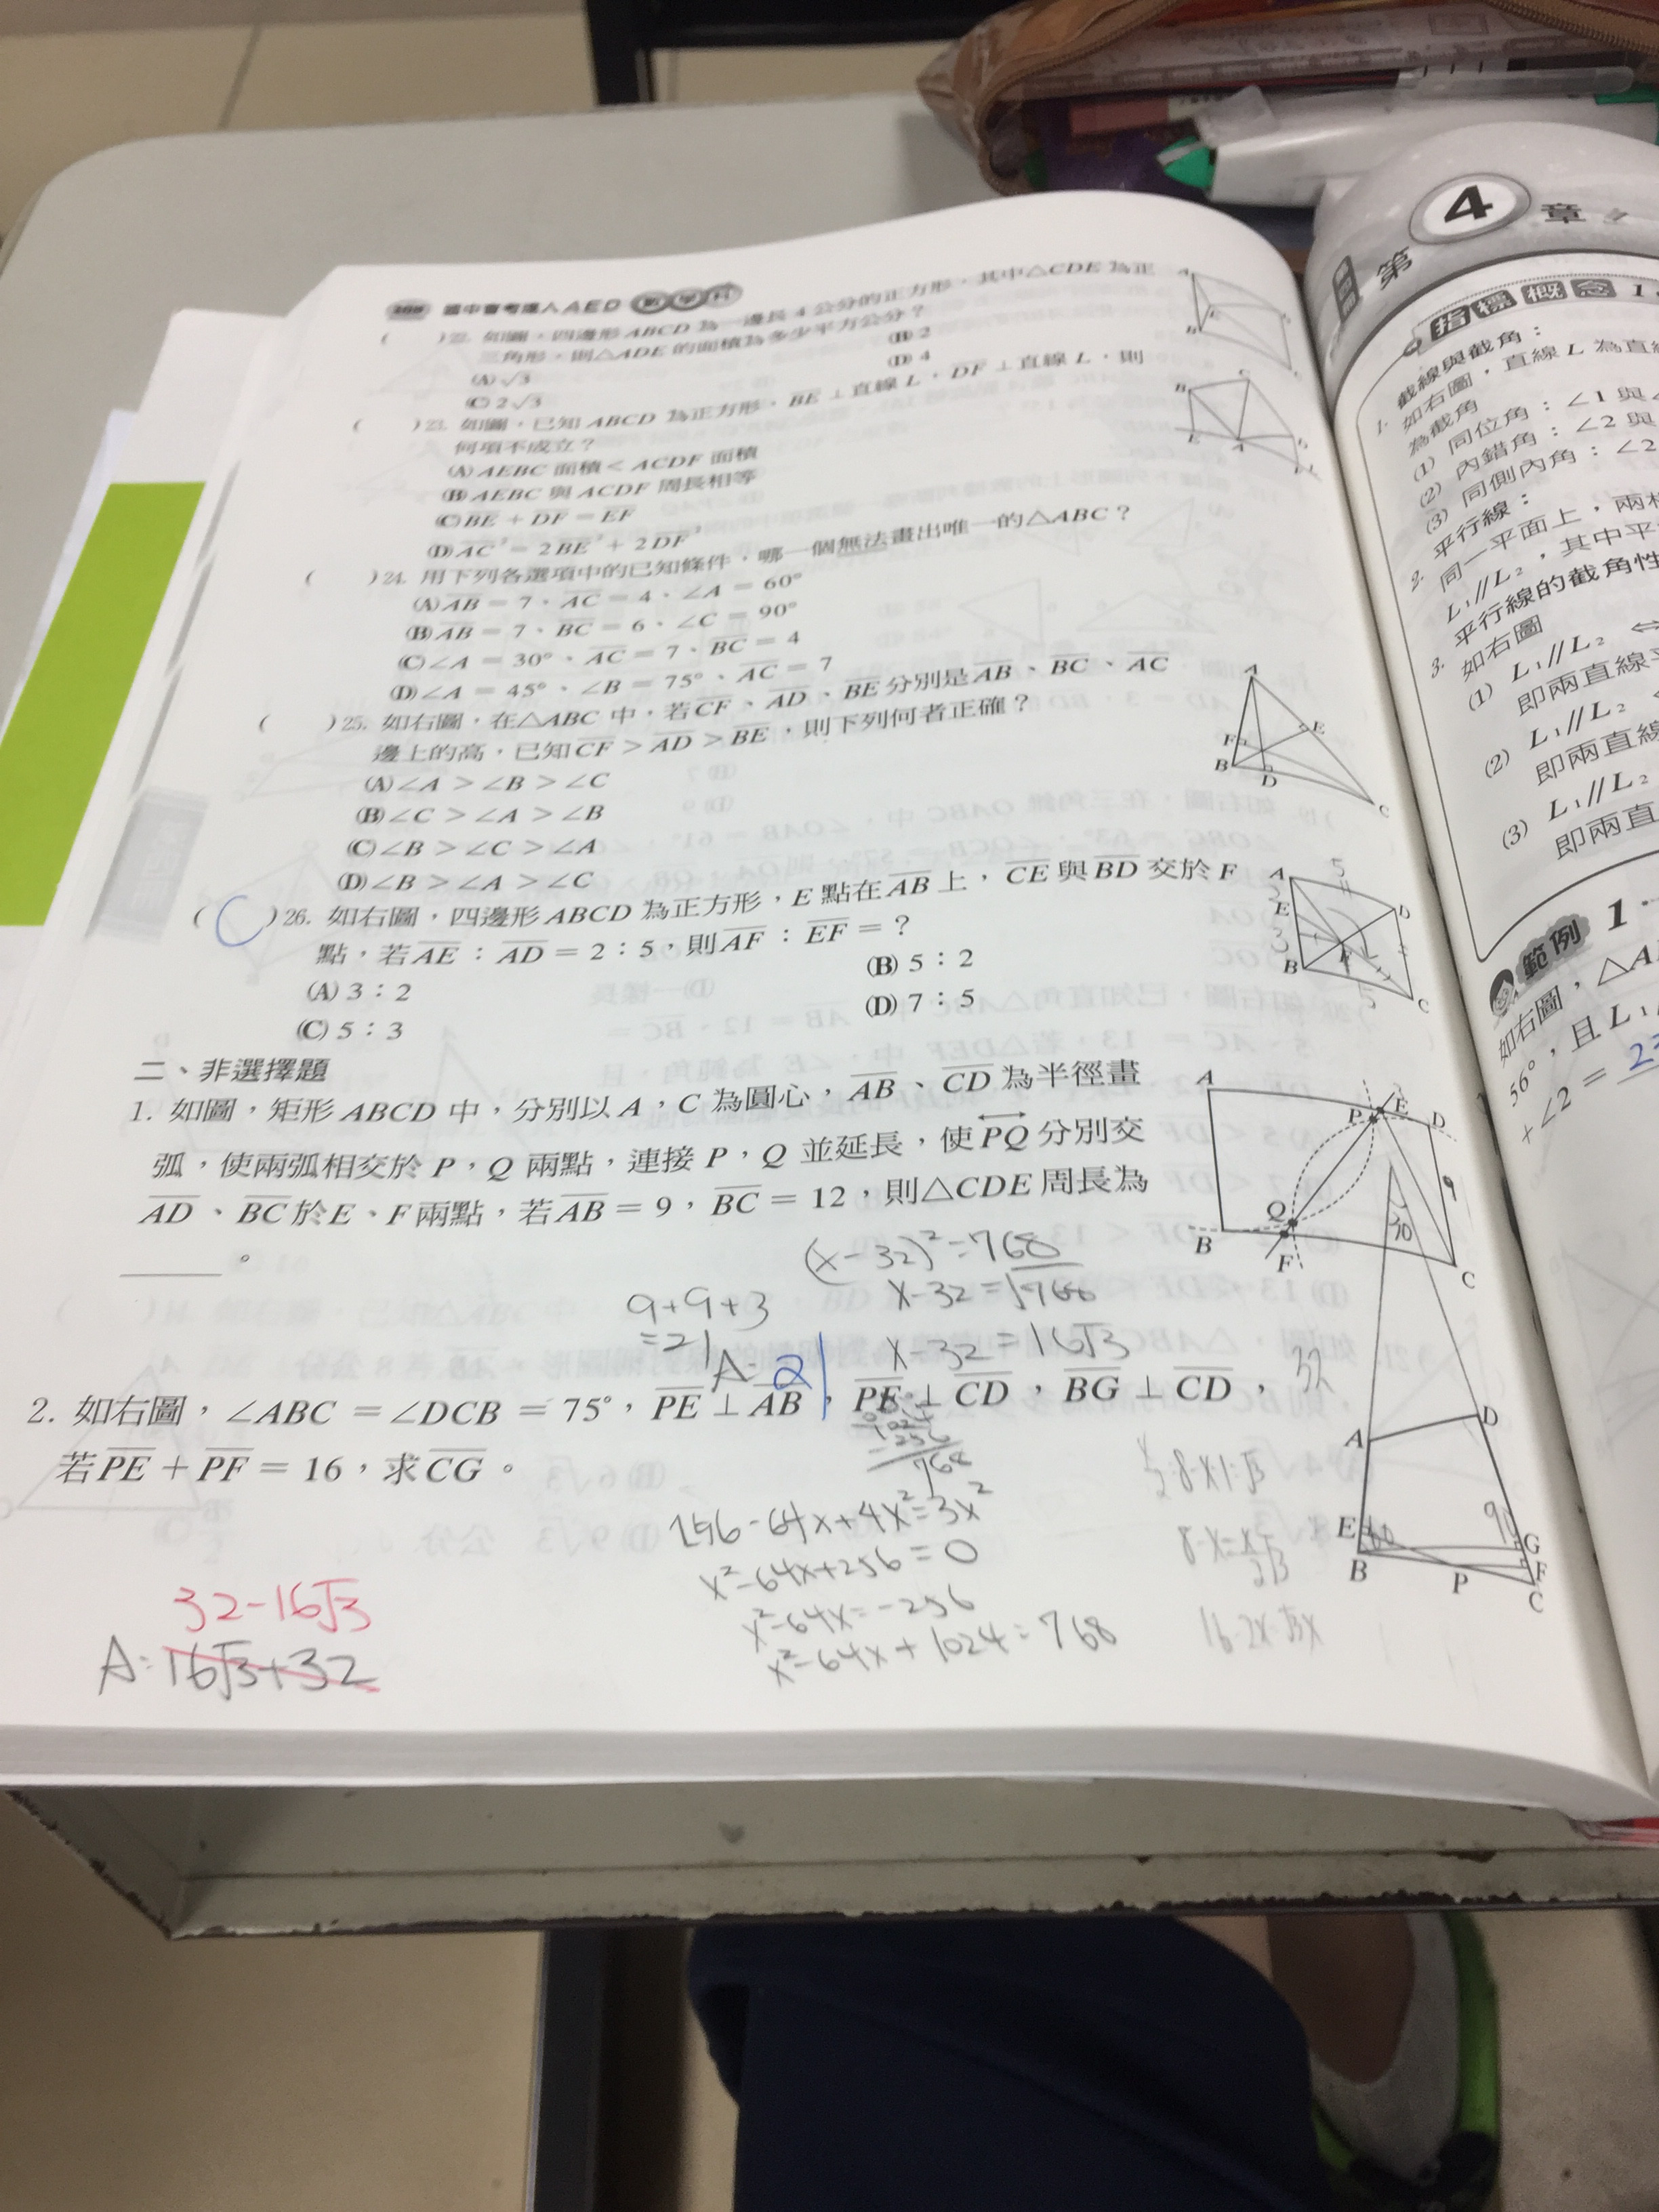 國中會考達人AED 數學科
( )22. 如圖，四邊形ABCD為一邊長4公分的正方形，其中△CDE為正
三角形，則△ADE的面積為多少平方公分？
(A)√3 (B) 2
(C) 2√3 (D) 4
( )23. 如圖，已知ABCD為正方形，BE⊥直線L，DF⊥直線L，則
何項不成立？
(A) AEBC面積＜ACDF面積
(B) AEBC與ACDF周長相等
(C) BE＋DF＝EF
(D) AC²＝2BE²＋2DF²
( )24. 用下列各選項中的已知條件，哪一個無法畫出唯一的△ABC？
(A) AB＝7、AC＝4、∠A＝60°
(B) AB＝7、BC＝6、∠C＝90°
(C)∠A＝30°、AC＝7、BC＝4
(D)∠A＝45°、∠B＝75°、AC＝7
( )25. 如右圖，在△ABC中，若CF、AD、BE分別是AB、BC、AC
邊上的高，已知CF＞AD＞BE，則下列何者正確？
(A)∠A＞∠B＞∠C
(B)∠C＞∠A＞∠B
(C)∠B＞∠C＞∠A
(D)∠B＞∠A＞∠C
( C )26. 如右圖，四邊形ABCD為正方形，E點在AB上，CE與BD交於F
點，若AE：AD＝2：5，則AF：EF＝？
(A) 3：2 (B) 5：2
(C) 5：3 (D) 7：5
二、非選擇題
1. 如圖，矩形ABCD中，分別以A，C為圓心，AB、CD為半徑畫
弧，使兩弧相交於P，Q兩點，連接P，Q並延長，使PQ分別交
AD、BC於E、F兩點，若AB＝9，BC＝12，則△CDE周長為
＿＿＿。
(x-32)²=768
x-32=√768
9+9+3
=21
x-32=16√3
A:21
2. 如右圖，∠ABC＝∠DCB＝75°，PE⊥AB，PF⊥CD，BG⊥CD，
若PE＋PF＝16，求CG。
32
1024
256
768
256-64x+4x²=3x²
x²-64x+256=0
x²-64x=-256
x²-64x+1024=768
32-16√3
A:16√3+32
A
B
C
D
E
F
P
Q
9
30
A
D
E
B
P
G
F
C
第4章
指標概念 1
截線與截角：
1. 如右圖，直線L為直線
為截角
(1) 同位角：∠1與
(2) 內錯角：∠2與
(3) 同側內角：∠2
2. 平行線：
同一平面上，兩
L₁//L₂，其中平
3. 平行線的截角性
如右圖
(1) L₁//L₂ ⇔
即兩直線平
(2) L₁//L₂
即兩直線
(3) L₁//L₂
即兩直
範例 1
如右圖，△A
56°，且L₁
+∠2＝